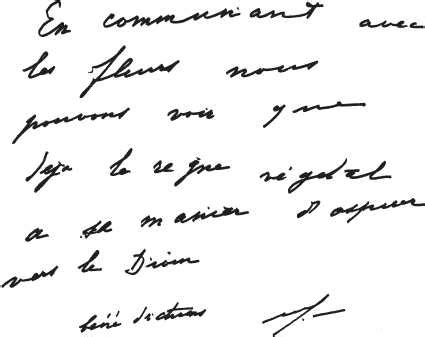 En communiant avec
les fleurs nous
pouvons voir que
déja le regne végétal
a sa manier d'aspirer
vers le Divin
bénédictions